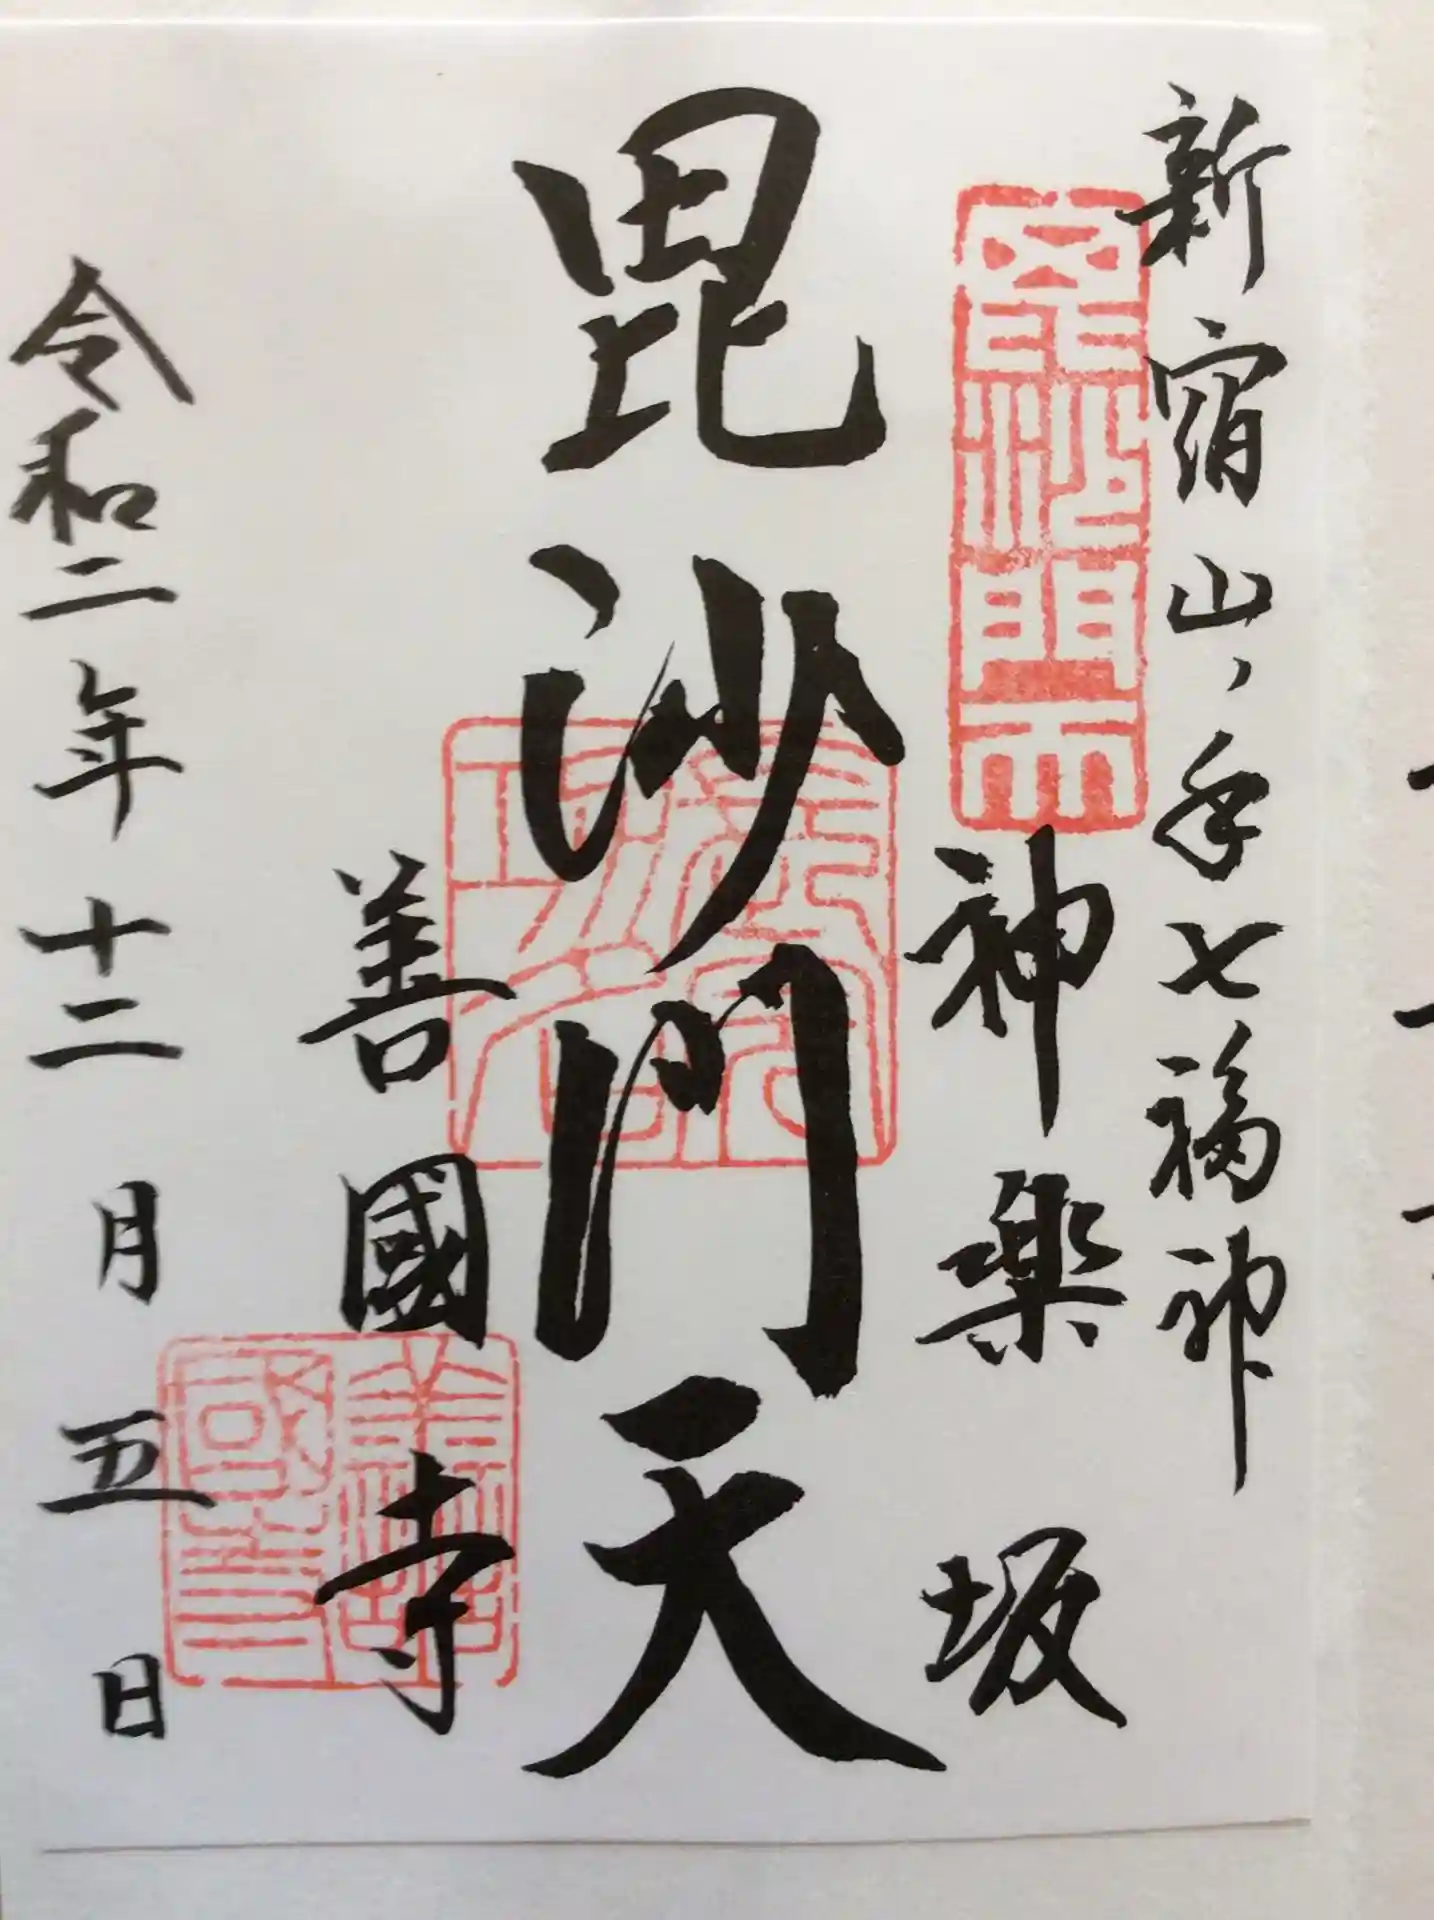 新宿山ノ手七福神
毘沙門天
神楽坂
毘沙門天
善國寺
令和二年十二月五日